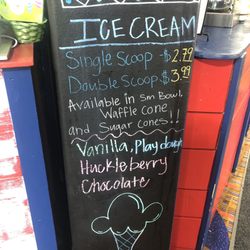 ICE CREAM
Single Scoop - $2.79
Double Scoop - $3.99
Available in Sm Bowl,
Waffle cone
and Sugar cones!!
Vanilla, Play dough
Huckleberry
Chocolate